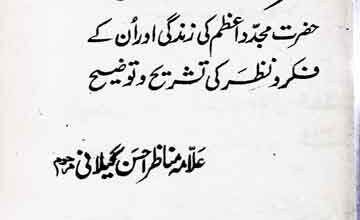 حضرت مجدّد اعظم کی زندگی اور اُن کے
فکر و نظر کی تشریح و توضیح
علّامہ مناظر احسن گیلانی مرحوم